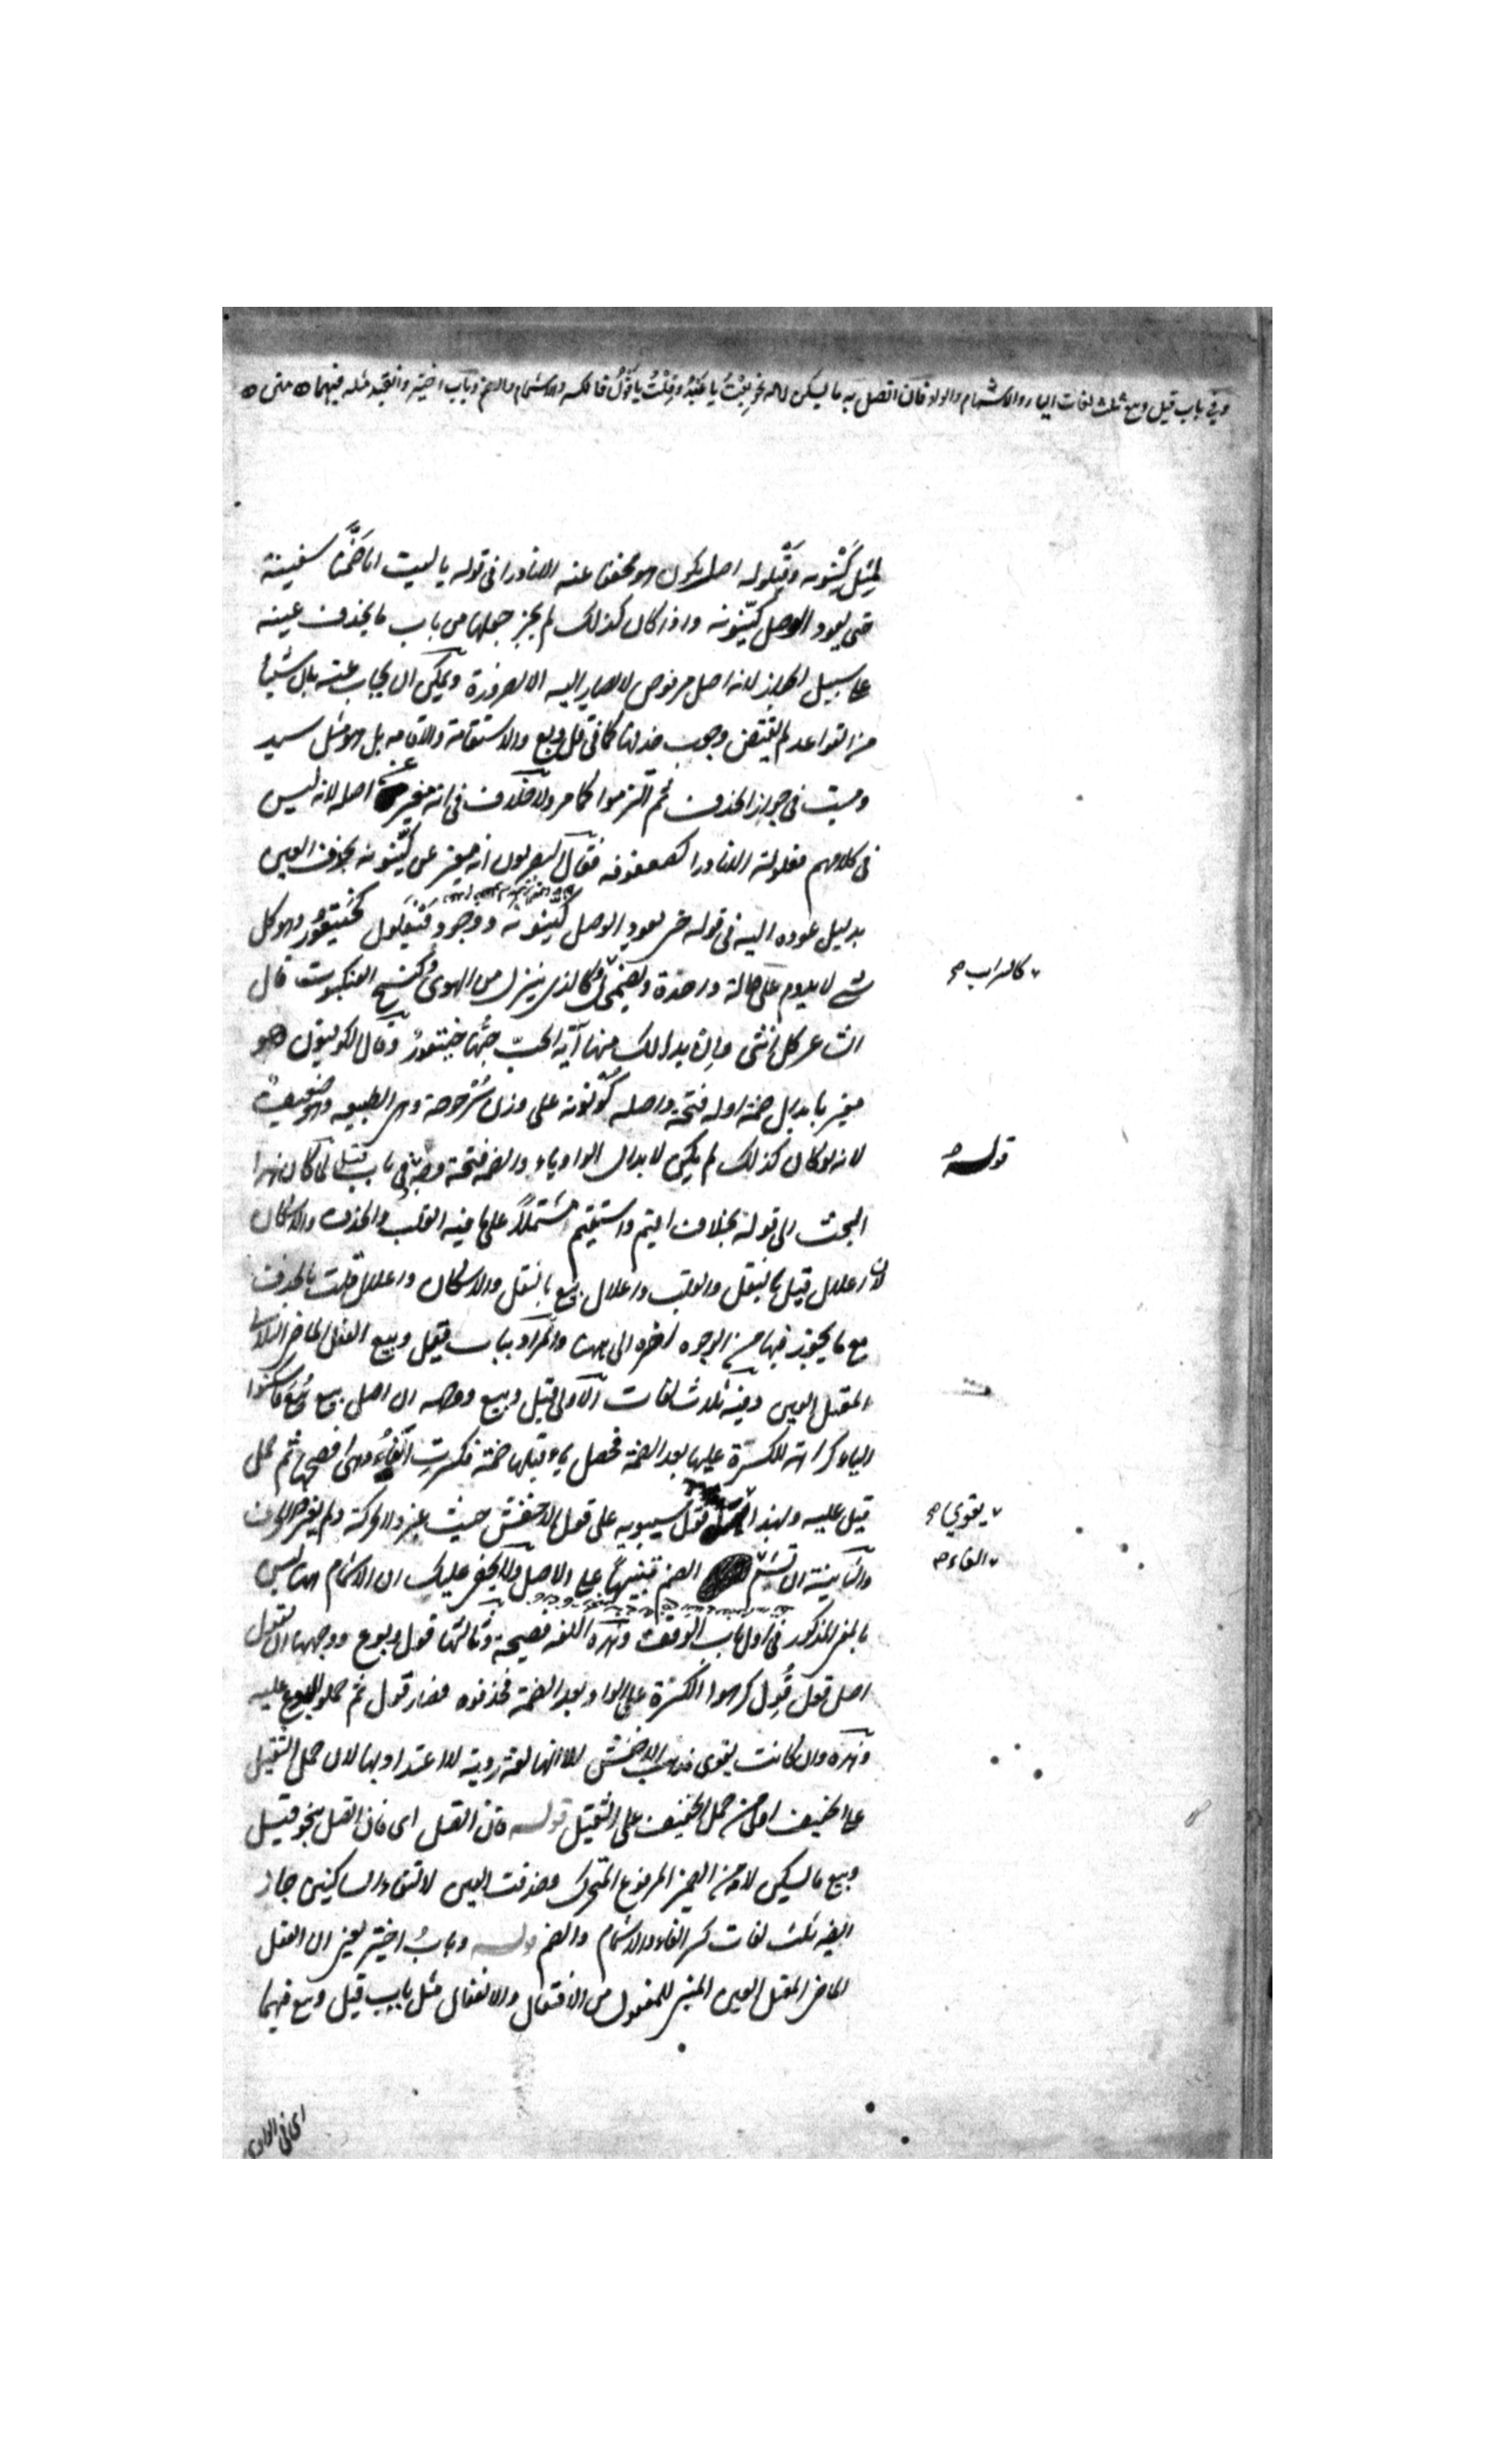 وفي باب قيل وبيع ثلث لغات الياء والاشمام والواو فان اتصل به ما يسكن لامه نحو بعت يا عبد وقلت يا قول فالكسر والاشمام والضم وباب اختير وانقيد مثله فيهما متن
لمثل كينونه وقيلوله اصل يكون هو مخففا عنه الا نادرا في قوله يا ليت انا ضمنا سفينة
حتى يعود الوصل كينونه واذا كان كذلك لم يجز جعلها من باب ما يحذف عينه
على سبيل الجواز لانه اصل مرفوض لا يصار اليه الا لضرورة ويمكن ان يجاب عنه بان شيئا
من القواعد لم يقتض وجوب حذفها كما في قل وبع والاستقامة والاقامه بل هو مثل سيد
وميت في جواز الحذف ثم التزموا كما مر ولا خلاف في انه مغير عن اصله لانه ليس
في كلامهم فعلولة الا نادرا كصعفوقه فقال البصريون انه مغير عن كينونه بحذف العين
بدليل عوده اليه في قوله حتى يعود الوصل كينونه ووجود فيعلول كخيتعور وهو كل
شئ لا يدوم على حالة واحدة ويضمحل وكالذي ينزل من الهوى كنسج العنكبوت قال
كالسراب صح
الشاعر كل انثى وان بدا لك منها آية الحب حبها خيتعور وقال الكوفيون هو
مغير بابدال ضمة اوله فتحة واصله كونونه على وزن سرجوجة وهي الطبيعه وهو ضعيف
لانه لو كان كذلك لم يكن لابدال الواو ياء والضمه فتحة وجه في باب قيل لما كان هذا
قوله
البحث الى قوله بخلاف اقيم واستقيم مشتملا على ما فيه القلب والحذف والاسكان
لان اعلال قيل بالنقل والقلب واعلال بيع بالنقل والاسكان واعلال قلت بالحذف
مع ما يجوز فيها من الوجوه اخره الى هنا والمراد بباب قيل وبيع الفعل الماضي الثلاثي
المعتل العين وفيه ثلاث لغات الاولى قيل وبيع ووجهه ان اصل بيع بيع فاسكنوا
الياء كراهة للكسرة عليها بعد الضمة فحصل ياء قبلها ضمة فكسرت الفاء وهي افصحها ثم حمل
قيل عليه وبهذا قول سيبويه على قول الاخفش حيث غير والحركة ولم يغير الحرف
يقوي صح
والثانية ان تشم الضم تنبيها على الاصل ولا يخفى عليك ان الاشمام هنا ليس
الفاء صح
بالمعنى المذكور في اول باب الوقف وهذه اللغه فصيحة وثالثها قول وبوع ووجهها ان تقول
اصل قول قول كرهوا الكسرة على الواو بعد الضمة فحذفوه فصار قول ثم حملوا بوع عليه
وهذه وان كانت يقوى مذهب الاخفش الا انها لغة ردية لا اعتداد بها لان حمل الثقيل
على الخفيف اولى من حمل الخفيف على الثقيل قوله فان اتصل اى فان اتصل بنحو قيل
وبيع ما يسكن لامه من الضمير المرفوع المتحرك وحذفت العين لالتقاء الساكنين جاز
ايضا ثلث لغات كسر الفاء والاشمام والضم قوله وباب اختير يعني ان الفعل
الماضي المعتل العين المبني للمفعول من الافتعال والانفعال مثل باب قيل وبيع فيهما